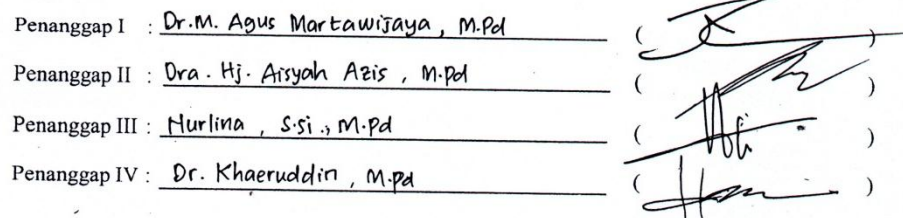 Penanggap I : Dr. M. Agus Martawijaya, M.Pd ( )
Penanggap II : Dra. Hj. Aisyah Azis, M.Pd ( )
Penanggap III : Nurlina, S.Si., M.Pd ( )
Penanggap IV : Dr. Khaeruddin, M.Pd ( )